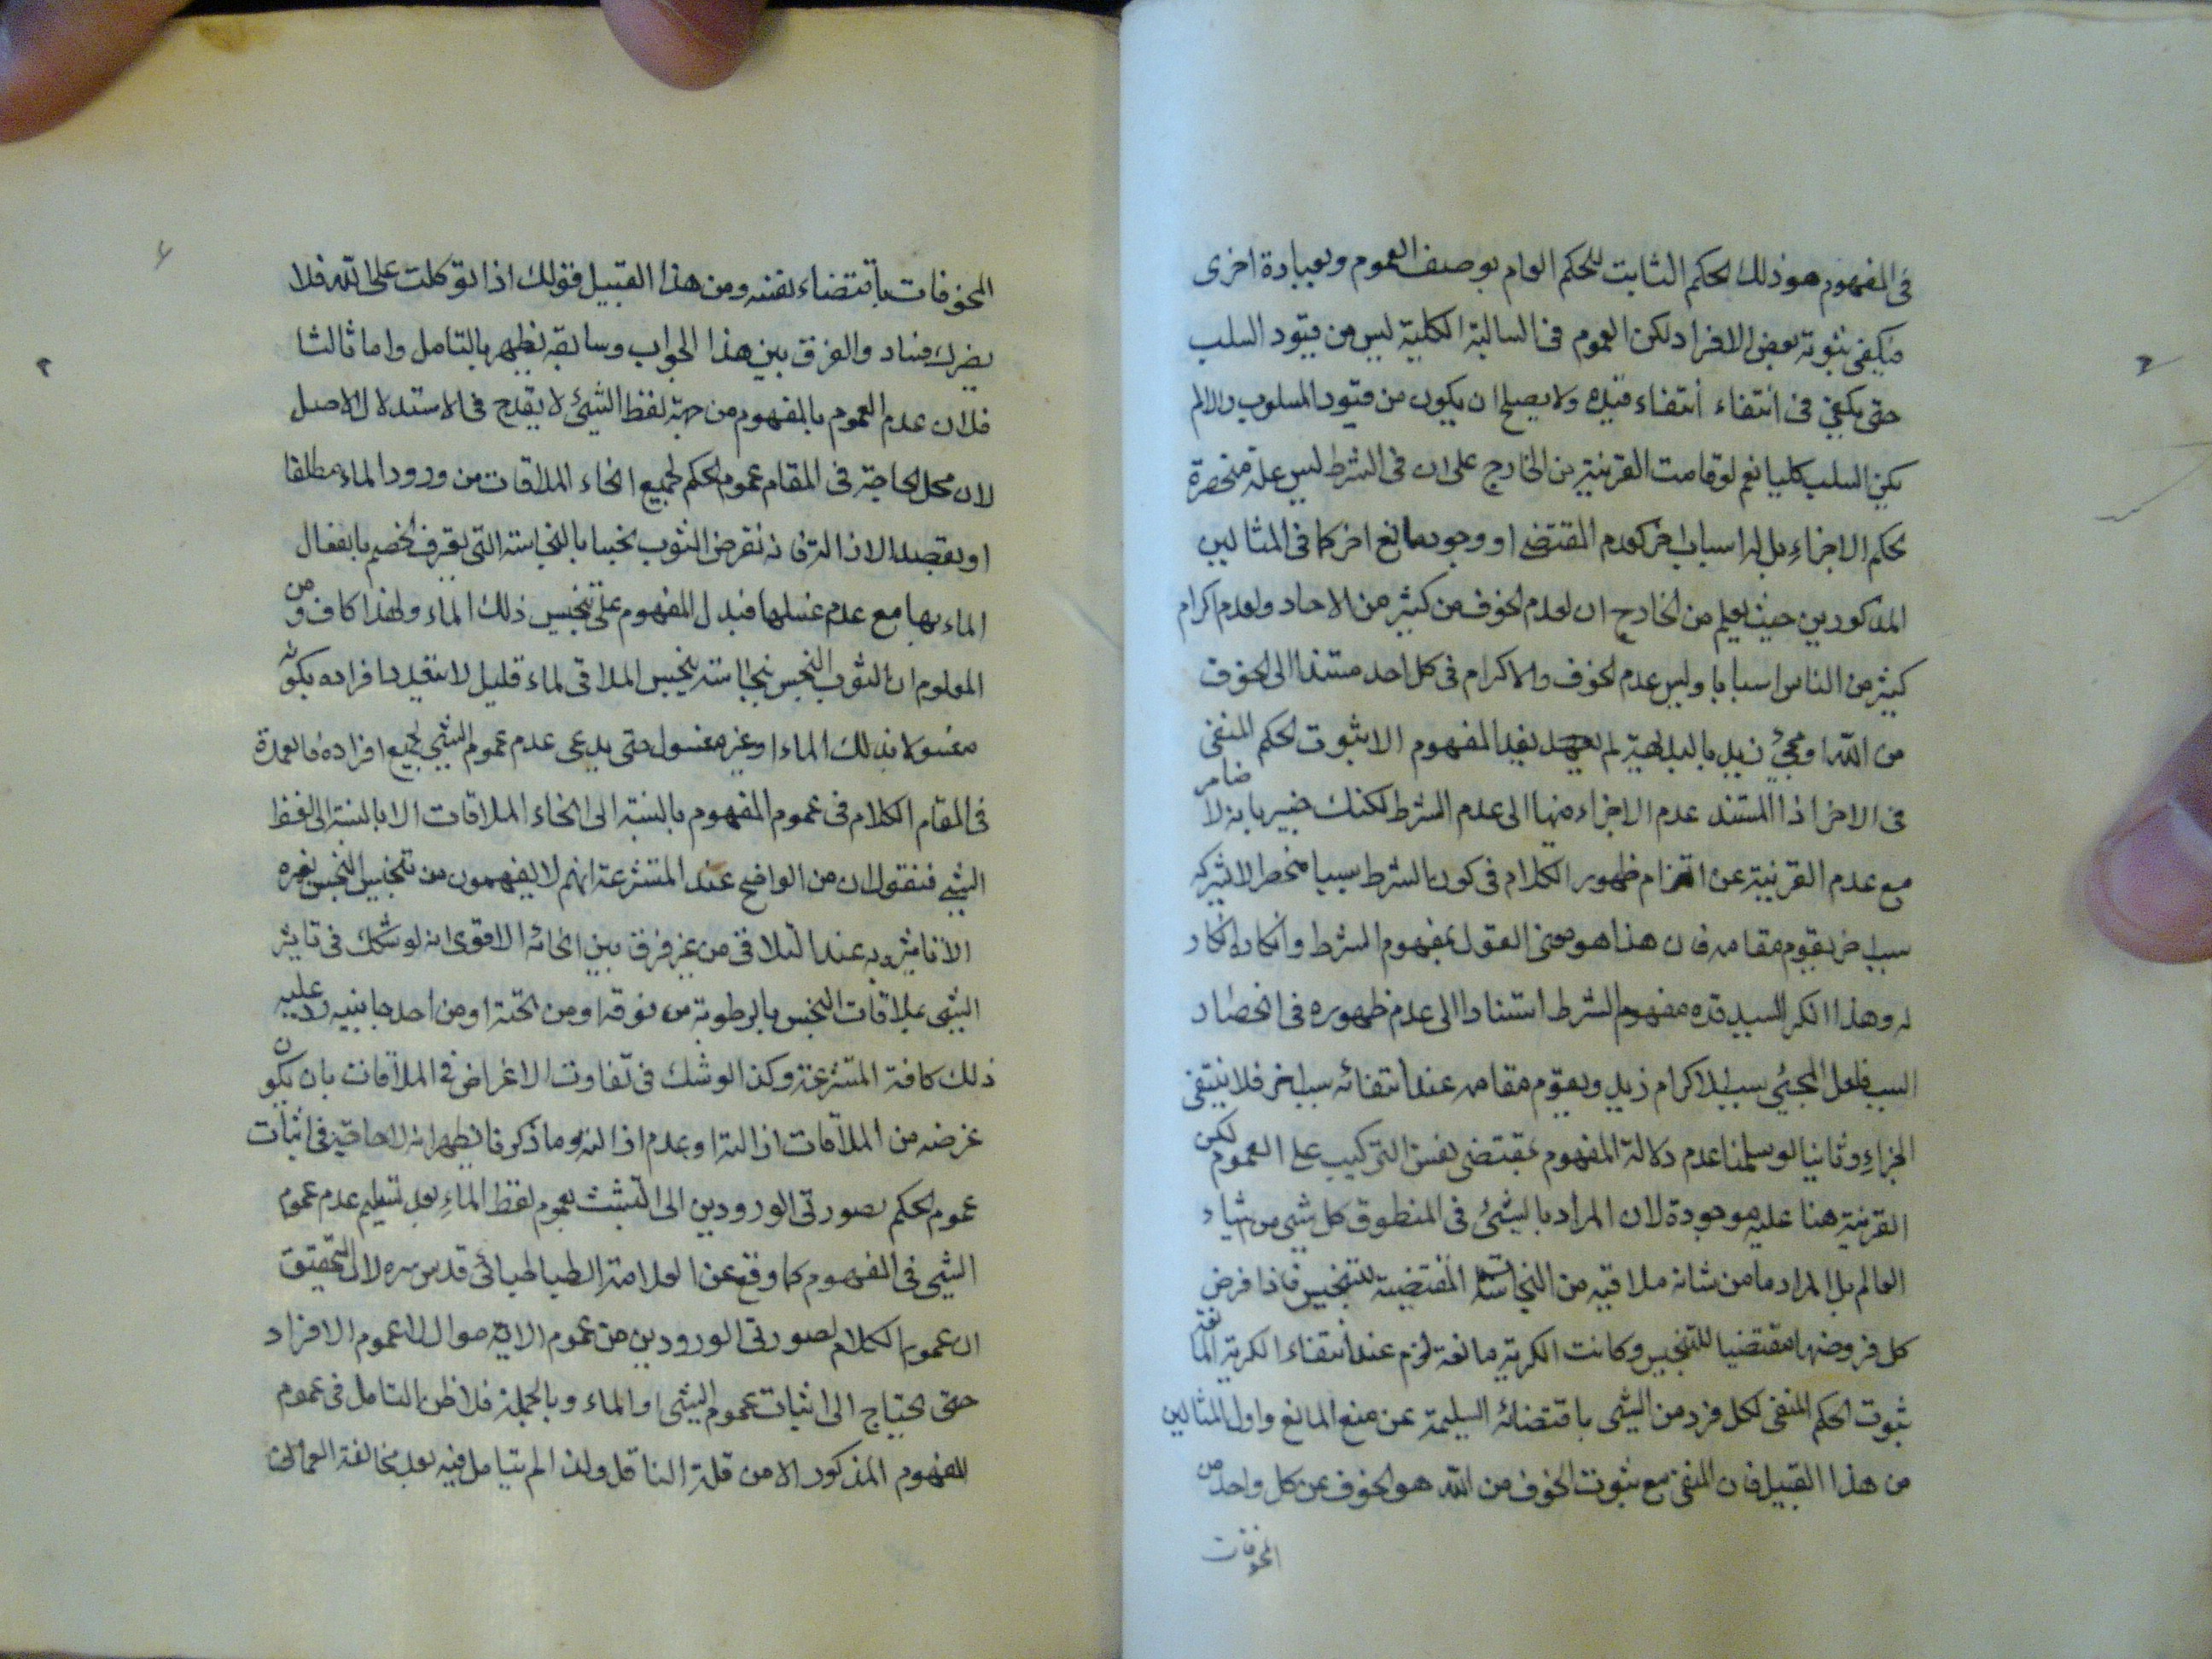 فى المفهوم هو ذلك الحكم الثابت للحكم العام بوصف العموم وبعبادة اخرى
فيكفى ثبوته بعض الافراد لكن العموم فى السالبة الكلية ليس من قيود السلب
حتى يكفى فى انتفاء انتفاء قيده ولا يصلح ان يكون من قيود المسلوب والا لم
يكن السلب كليا نعم لو قامت القرينة من الخارج على ان فى الشرط ليس علة منحصرة
لحكم الاجزاء بل له اسباب اخر كعدم المقتضى او وجود مانع اخر كما فى المثالين
المذكورين حيث يعلم من الخارج ان لعدم الخوف من كثير من الاحاد ولعدم اكرام
كثير من الناس اسبابا وليس عدم الخوف والاكرام فى كل احد مستندا الى الخوف
من الله او مجئ زيد بالبداهة لم يفد المفهوم الا ثبوت الحكم المنفى
فى الاخر اذا استند عدم الاجزاء منها الى عدم الشرط لكنك خبير بانه لا ضامر
مع عدم القرينة عن التزام ظهور الكلام فى كون الشرط سببا منحصرا لا يشركه
سبب اخر يقوم مقامه فان هذا هو معنى القول بمفهوم الشرط وانكاره انكار
له وهذا انكر السيد قده مفهوم الشرط استنادا الى عدم ظهوره فى انحصار
السبب فلعل المجئ سبب لاكرام زيد ويقوم مقامه عند انتفائه سبب اخر فلا ينتفى
الجزاء وثانيا لو سلمنا عدم دلالة المفهوم بمقتضى نفس التركيب على العموم لكن
القرينة هنا عليه موجودة لان المراد بالشئ فى المنطوق كل شئ من اشياء
العالم بل المراد ما من شانه ملاقيه من النجاسة المقتضية للتنجيس فاذا فرض
كل فرد منها مقتضيا للتنجيس وكانت الكرية مانعة لزم عند انتفاء الكرية المانعة
ثبوت الحكم المنفى لكل فرد من الشى باقتضائه السليمة عن منع المانع واول المثالين
من هذا القبيل فان المنفى مع ثبوت الخوف من الله هو الخوف عن كل واحد من
المخوفات
٦
المخوفات باقتضاء نفسه ومن هذا القبيل قولك اذا توكلت على الله فلا
يضرك فساد والفرق بين هذا الجواب وسابقه يظهر بالتامل واما ثالثا
فلان عدم العموم بالمفهوم من جهة لفظ الشئ لا يقدح فى الاستدلال الاصل
لان محل الحاجة فى المقام عموم الحكم لجميع انحاء الملاقات من ورود الماء مطلقا
او بقصد الازالة فانه نفرض الثوب نجسا بالنجاسة التى يعترف الخصم بانفعال
الماء بها مع عدم غسلها فيدل المفهوم على تنجيس ذلك الماء وهذا كاف و من
المعلوم ان الثوب النجس بنجاسة ينجس الملاقى لماء قليل لا يتعدد افراده بكونه
مغسولا بذلك الماء او غير مغسول حتى يدعى عدم عموم الشئ لجميع افراده فالعمدة
فى المقام الكلام فى عموم المفهوم بالنسبة الى انحاء الملاقات لا بالنسبة الى لفظ
الشئ فنقول ان من الواضح عند المتشرعة انهم لا يفهمون من تنجيس النجس لغيره
الا تاثيره به عند التلاقى من غير فرق بين انحائه الا قوى انه لو شك فى تاثير
الشئ بملاقات النجس بالرطوبة من فوقه او من تحته او من احد جانبيه رد عليه
ذلك كافة المتشرعة وكذا لو شك فى تفاوت الاغراض فى الملاقات بان يكون
غرضه من الملاقات ازالته او عدم ازالته وما ذكرنا يظهر انه لا حاجة فى اثبات
عموم الحكم بصورتى الورودين الى التشبث بعموم لفظ الماء بعد تسليم عدم عموم
الشئ فى المفهوم كما وقع عن العلامة الطباطبائى قدس سره لان التحقيق
ان عموم الكلام لصورتى الورودين من عموم الاحوال لا عموم الافراد
حتى يحتاج الى اثبات عموم الشئ او الماء وبالجملة فلا اظن التامل فى عموم
المفهوم المذكور الا من قلة التامل ولذا لم يتامل فيه بعد مخالفة العمانى